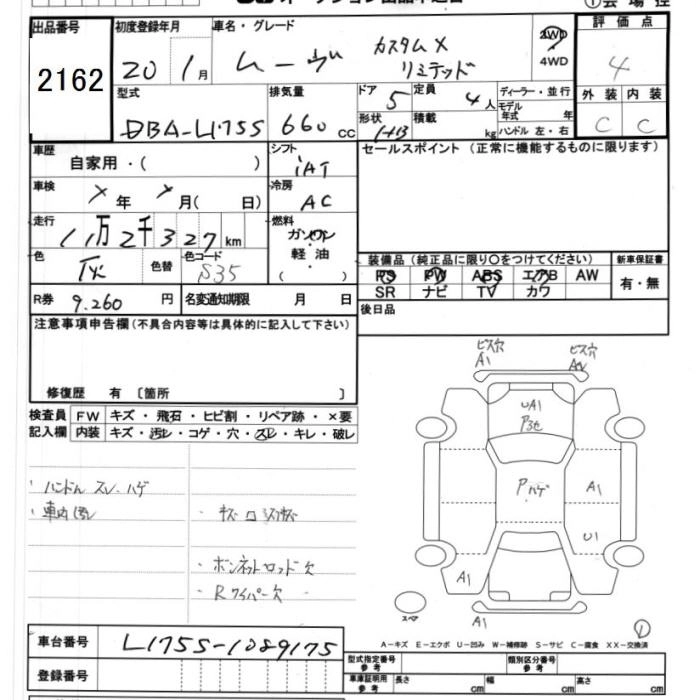 出品番号
2162
初度登録年月
20 1月
車名・グレード
ムーヴ カスタムX
リミテッド
2WD
4WD
評価点
4
外装 内装
C C
型式
DBA-L175S
排気量
660 cc
ドア
5
定員
4人
形状
HB
積載
kg
ディーラー・並行
モデル年式 年
ハンドル 左・右
車歴
自家用・( )
シフト
IAT
車検
年 月( 日)
冷房
AC
走行
11万2千327km
燃料
ガソリン
軽・油
( )
色
灰
色替
色コード
S35
R券 9.260 円
名変通知期限 月 日
セールスポイント(正常に機能するものに限ります)
装備品(純正品に限り○をつけてください)
PS PW ABS エアB AW
SR ナビ TV カワ
新車保証書
有・無
後日品
注意事項申告欄(不具合内容等は具体的に記入して下さい)
修復歴 有〔箇所 〕
検査員記入欄
FW キズ・飛石・ヒビ割・リペア跡・×要
内装 キズ・汚レ・コゲ・穴・スレ・キレ・破レ
ハンドル スレ・ハゲ
車内汚レ
ボンネットロッド欠
Rワイパー欠
ビス穴
A1
ビス穴
UA1
Pハゲ
A1
U1
A1
A1
スペア
A-キズ E-エクボ U-凹み W-補修跡 S-サビ C-腐食 XX-交換済
車台番号
L175S-1089175
登録番号
型式指定番号 参考
類別区分番号 参考
車庫証明用 参考
長さ cm 幅 cm 高さ cm